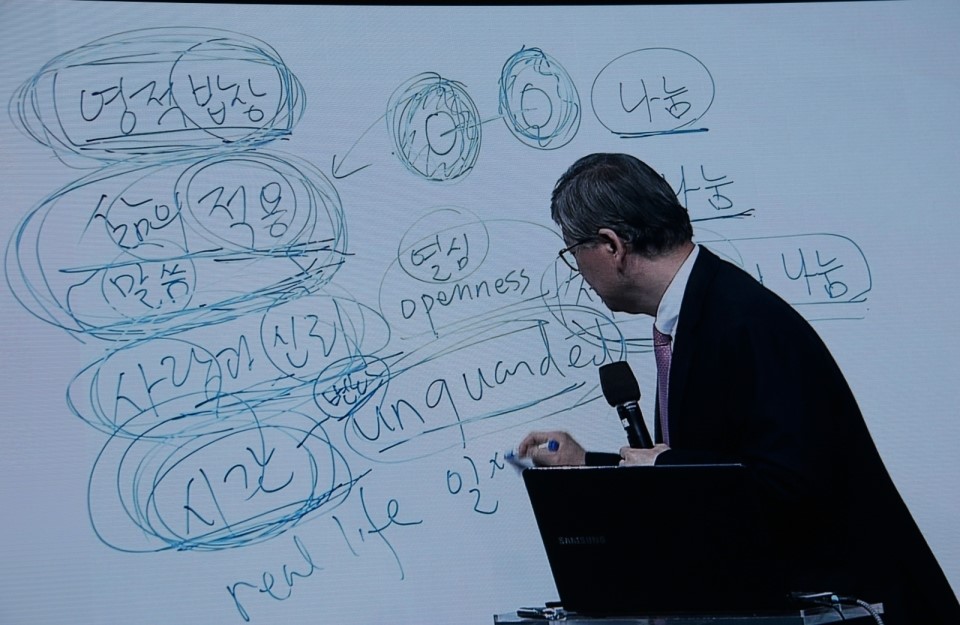 영적 밥상
나눔
삶의 적용
나눔
말씀
열심
openness
나눔
사랑과 신뢰
unguarded
시간
real life
SAMSUNG